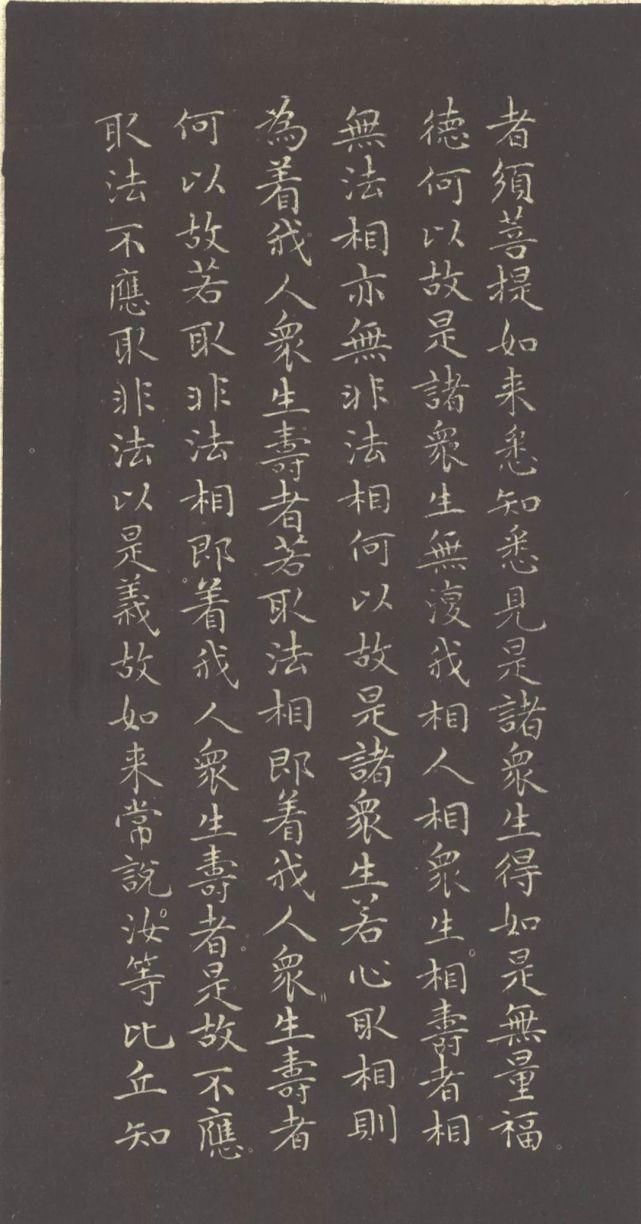 者須菩提如来悉知悉見是諸衆生得如是無量福
德何以故是諸衆生無復我相人相衆生相壽者相
無法相亦無非法相何以故是諸衆生若心取相則
為着我人衆生壽者若取法相即着我人衆生壽者
何以故若取非法相即着我人衆生壽者是故不應
取法不應取非法以是義故如来常說汝等比丘知